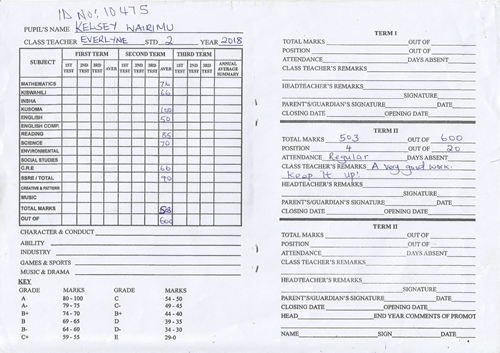 ID No: 10475
PUPIL'S NAME KELSEY WAIRIMU
CLASS TEACHER EVERLYNE STD. 2 YEAR 2018
SUBJECT FIRST TERM SECOND TERM THIRD TERM ANNUAL AVERAGE SUMMARY
1ST TEST 2ND TEST 3RD TEST AVER 1ST TEST 2ND TEST 3RD TEST AVER 1ST TEST 2ND TEST 3RD TEST
MATHEMATICS 76
KISWAHILI 66
INSHA
KUSOMA 100
ENGLISH 50
ENGLISH COMP.
READING
SCIENCE 70
ENVIRONMENTAL
SOCIAL STUDIES
C.R.E
SSRE / TOTAL 90
CREATIVE & PATTERN
MUSIC
TOTAL MARKS 503
OUT OF 600
CHARACTER & CONDUCT
ABILITY
INDUSTRY
GAMES & SPORTS
MUSIC & DRAMA
KEY
GRADE MARKS GRADE MARKS
A 80 - 100 C 54 - 50
A- 79 - 75 C- 49 - 45
B+ 74 - 70 B+ 44 - 40
B 69 - 65 D 39 - 35
B- 64 - 60 D- 34 - 30
C+ 59 - 55 E 29-0
TERM I
TOTAL MARKS OUT OF
POSITION OUT OF
ATTENDANCE DAYS ABSENT
CLASS TEACHER'S REMARKS
HEADTEACHER'S REMARKS
SIGNATURE
PARENT'S/GUARDIAN'S SIGNATURE DATE
CLOSING DATE OPENING DATE
TERM II
TOTAL MARKS 503 OUT OF 600
POSITION 4 OUT OF 20
ATTENDANCE Regular DAYS ABSENT
CLASS TEACHER'S REMARKS A very good work.
Keep it up!
HEADTEACHER'S REMARKS
SIGNATURE
PARENT'S/GUARDIAN'S SIGNATURE DATE
CLOSING DATE OPENING DATE
TERM II
TOTAL MARKS OUT OF
POSITION OUT OF
ATTENDANCE DAYS ABSENT
CLASS TEACHER'S REMARKS
HEADTEACHER'S REMARKS
SIGNATURE
PARENT'S/GUARDIAN'S SIGNATURE DATE
CLOSING DATE OPENING DATE
HEAD END YEAR COMMENTS OF PROMOT
NAME SIGN DATE